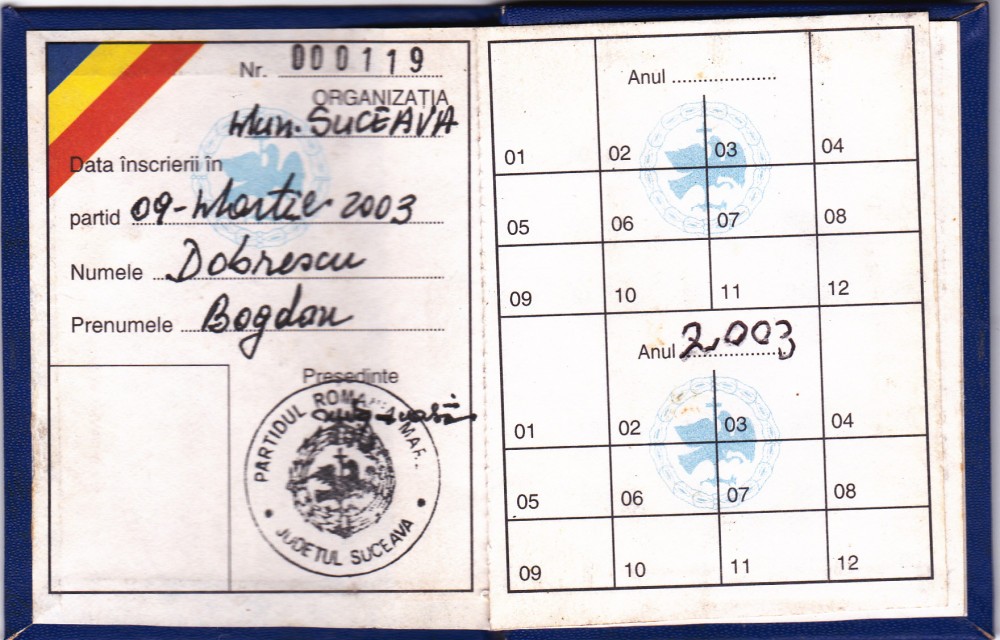 Nr. 000119
ORGANIZAȚIA
Mun. SUCEAVA
Data înscrierii în
partid 09-Martie 2003
Numele Dobrescu
Prenumele Bogdan
Președinte
PARTIDUL ROMA
JUDEȚUL SUCEAVA
Anul
01 02 03 04
05 06 07 08
09 10 11 12
Anul 2003
01 02 03 04
05 06 07 08
09 10 11 12